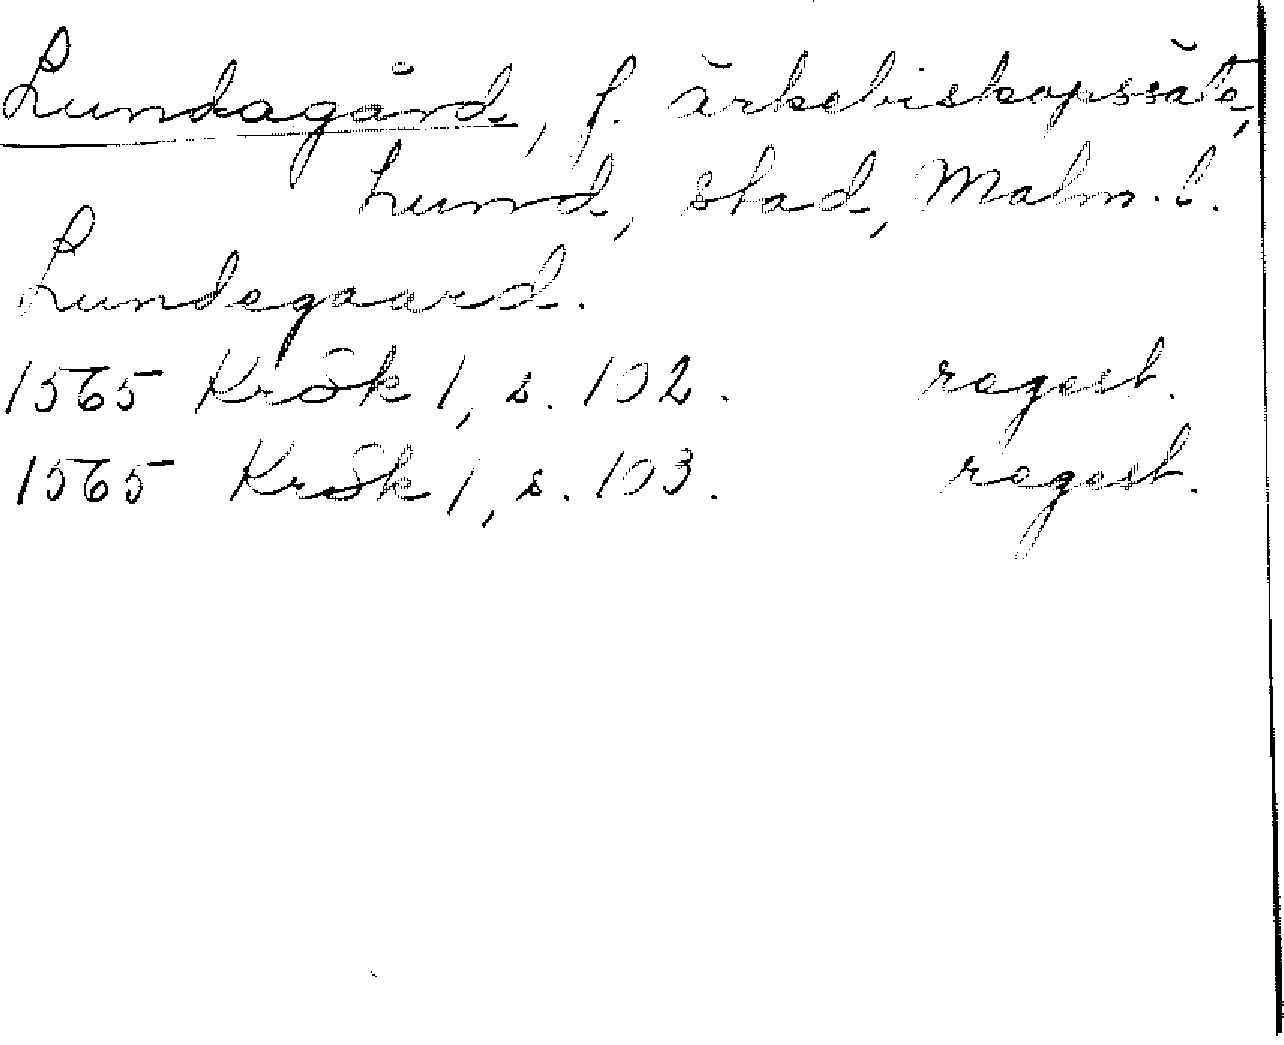 Lundagård, f. ärkebiskopssäte,
Lund, stad, Malm. l.
Lundegaard.
1565 KrÖk 1, s. 102. regest.
1565 KrÖk 1, s. 103. regest.